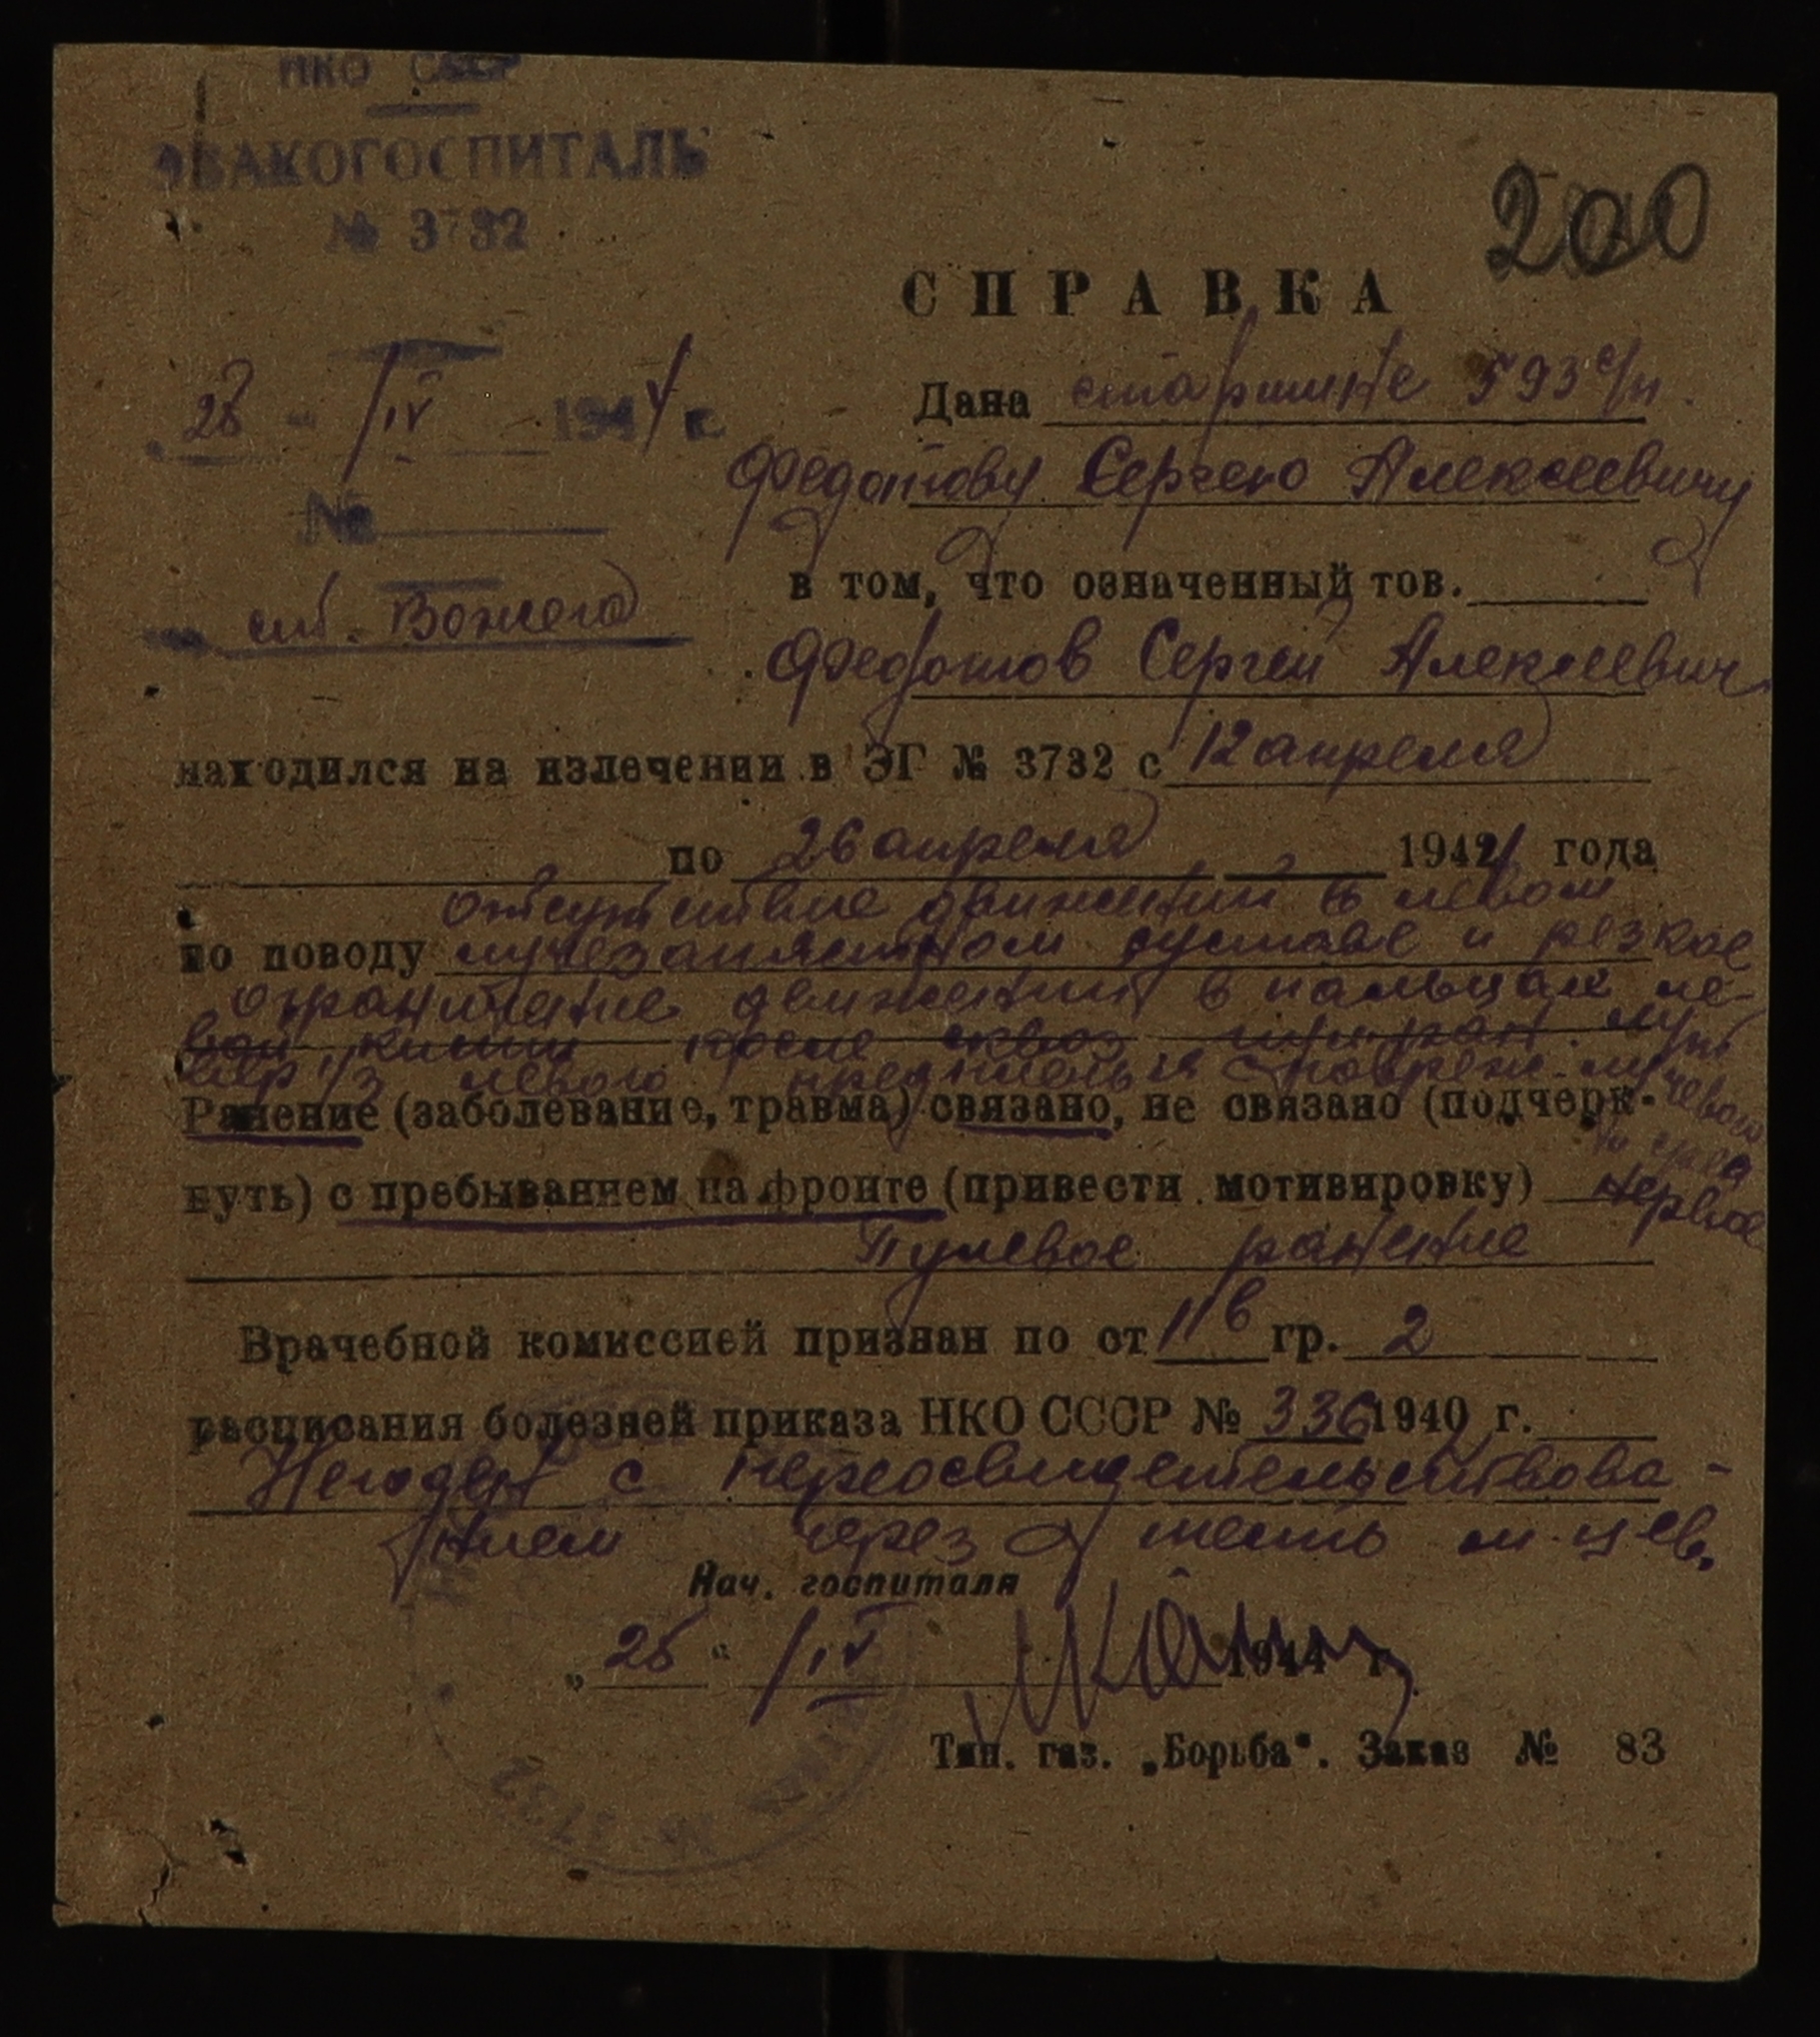 НКО СССР
ЭВАКОГОСПИТАЛЬ
№ 3732
200
СПРАВКА
26 - /IV 1944 г.
Дана старшине 593 с/п.
Федотову Сергею Алексеевичу
№
в том, что означенный тов.
ст. Вожега
Федотов Сергей Алексеевич
находился на излечении в ЭГ № 3732 с 12 апреля
по 26 апреля 1944 года
отсутствие движений в левом
по поводу лучезапястном суставе и резкое
ограничение движений в пальцах ле-
вой кисти после сквоз. пул. ран.
1/3 левого предплечья с поврежд. лучевого
Ранение (заболевание, травма) связано, не связано (подчерк-
нуть) с пребыванием на фронте (привести мотивировку) нервов
Пулевое ранение
Врачебной комиссией признан по ст 11в гр. 2
расписания болезней приказа НКО СССР № 336 1940 г.
Негоден с переосвидетельствова-
нием через шесть м-цев.
Нач. госпиталя
„ 26 “ /IV 1944 г.
Тип. газ. „Борьба“. Заказ № 83
№ 3732